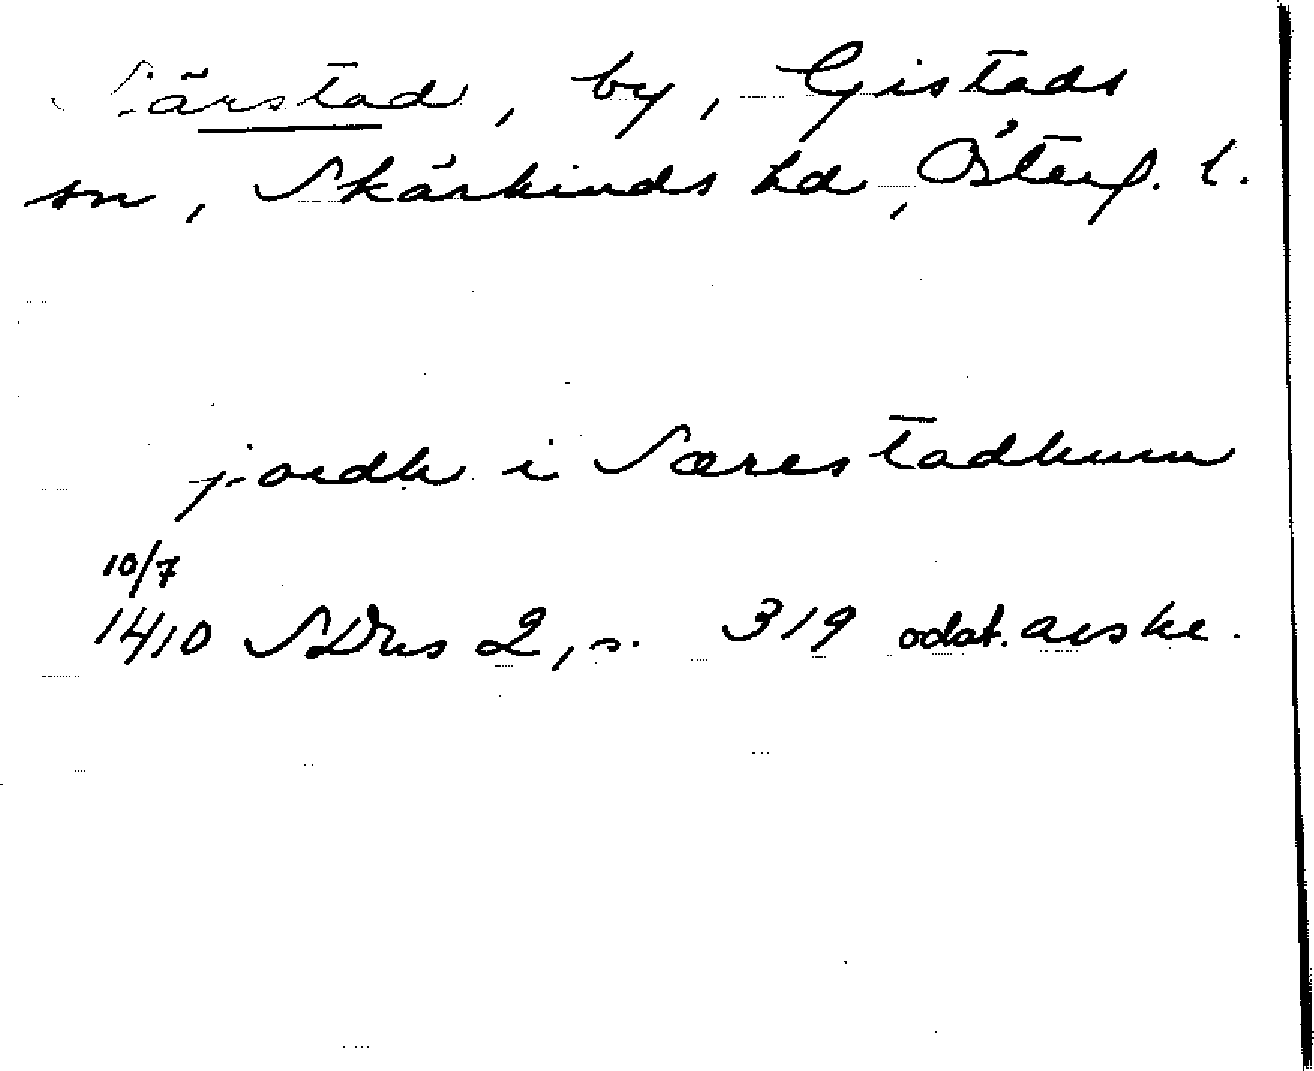 Särstad, by, Gistads
sn, Skärkinds hd, Österg. l.
jordh i Særestadhum
10/7
1410 SDns 2, s. 319 odat. avskr.